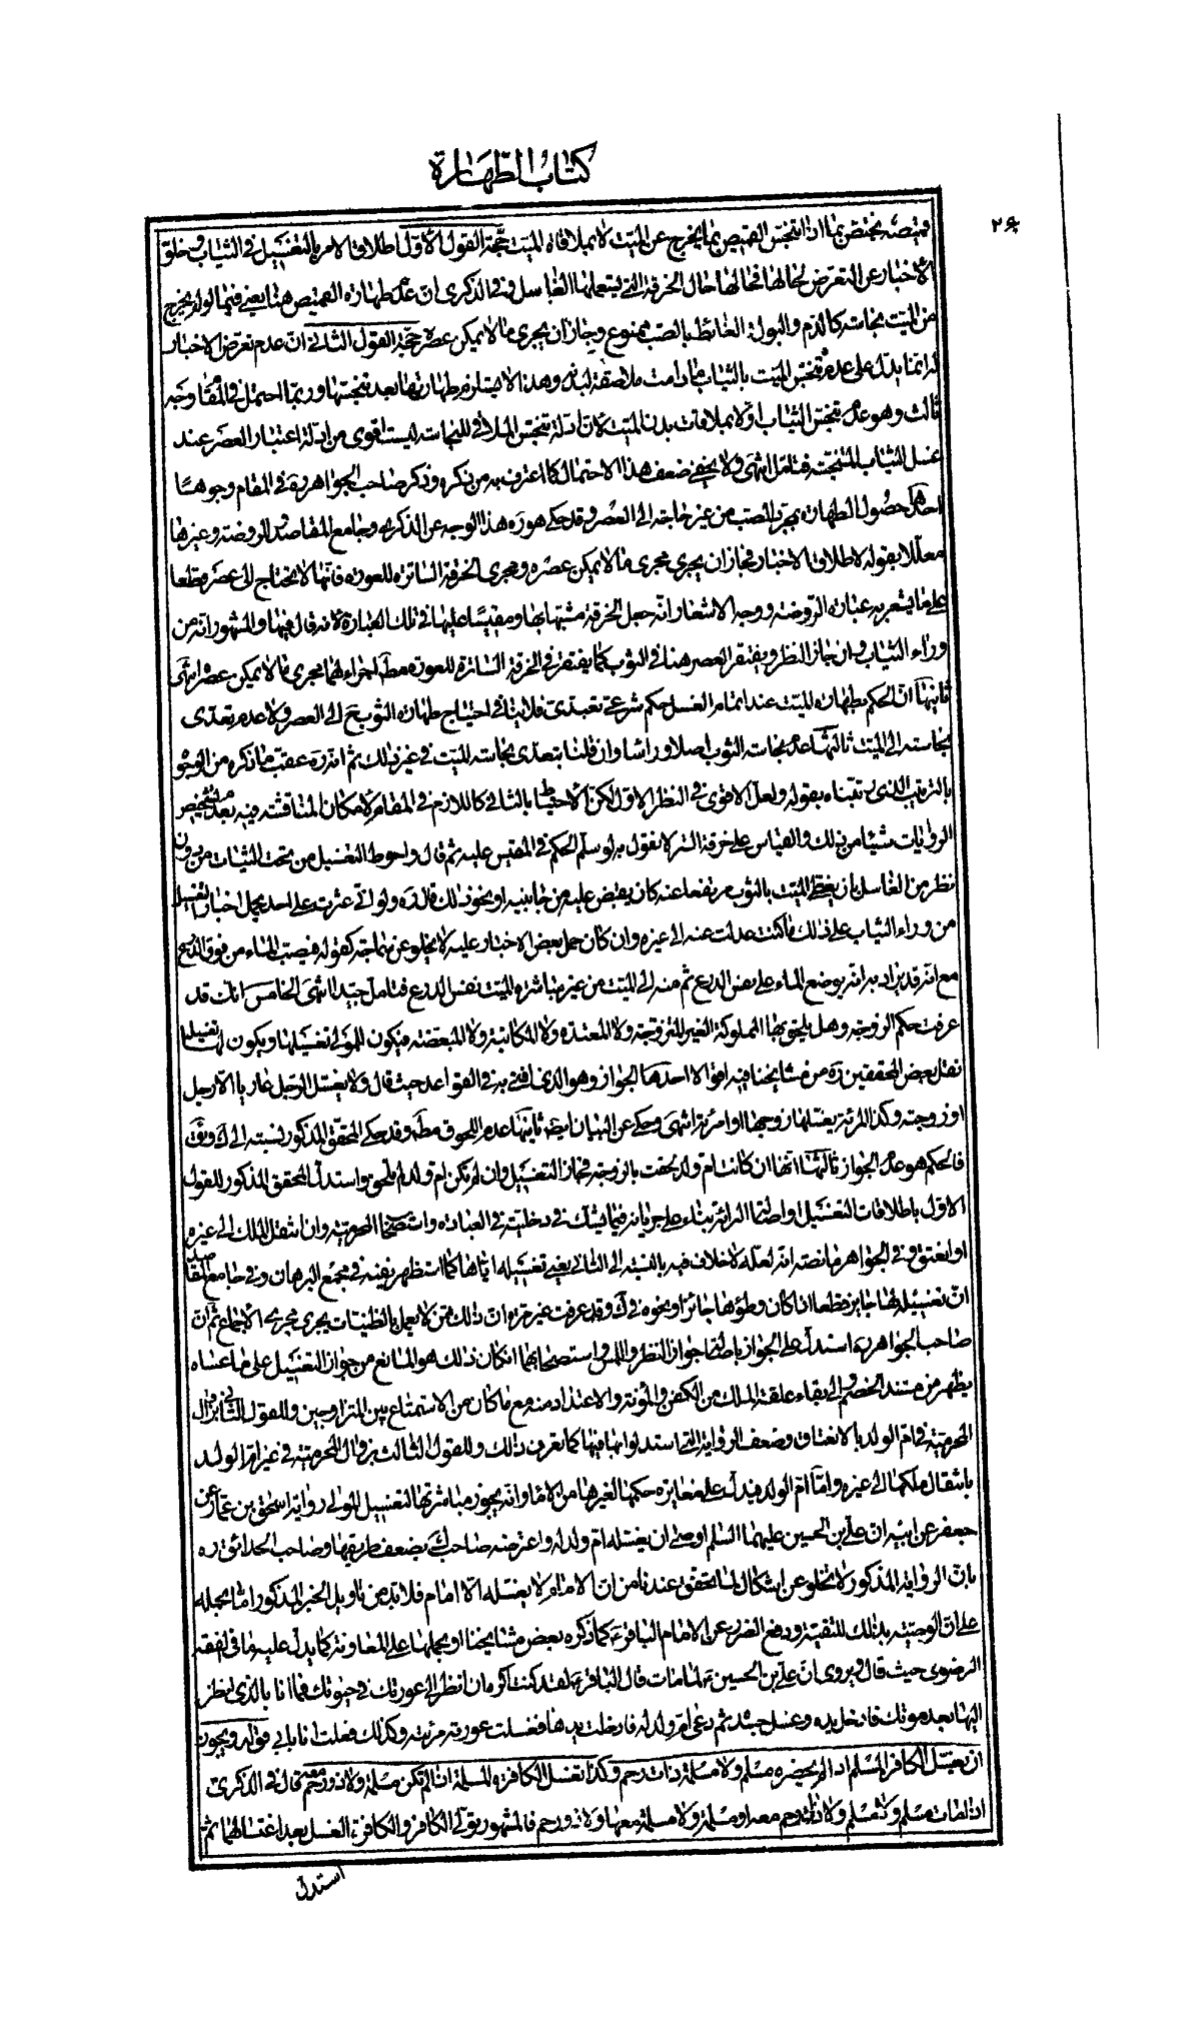 كتاب الطهارة
٢۶
قميصه يختص بما اذا تنجس القميص بما يخرج عن الميت لا بملاقاة الميت حجة القول الأول اطلاق الامر بالتغسيل في الثياب وخلو
الأخبار عن التعرض لحالها فحالها حال الخرقة التي يستعملها الغاسل وفي الذكرى ان عدم طهارة القميص هنا يعني فيما لو لم يخرج
من الميت نجاسة كالدم والبول والغائط بالصب ممنوع وجاز ان يجري مالا يمكن عصره حجة القول الثاني ان عدم تعرض الاخبار
له انما يدل على عدم تنجس الميت بالثياب مادامت ملاصقة لبدنه وهذا لا يستلزم طهارتها بعد تنجسها وربما احتمل في المقام وجه
ثالث وهو عدم تنجس الثياب اولا بملاقات بدن الميت لان ادلة تنجس الملاقي للنجاسة ليست اقوى من ادلة اعتبار العصر عند
غسل الثياب المتنجسة فتامل انتهى ولا يخفى ضعف هذا الاحتمال كما اعترف به من ذكره وذكر صاحب الجواهر ره في المقام وجوها
احدها حصول الطهارة بمجرد الصب من غير حاجة الى العصر وقد حكى هو ره هذا الوجه عن الذكرى وجامع المقاصد والروضة وغيرها
معللا بقوله لاطلاق الاخبار فجاز ان يجري مجرى ما لا يمكن عصره ومجرى الخرقة الساترة للعورة فانها لا يحتاج الى عصر قطعا
على ما يشعر به عبارة الروضة ووجه الاشعار انه جعل الخرقة مشبها بها ومقيسا عليها في تلك العبارة لانه قال فيها والمشهور انه من
وراء الثياب وان جاز النظر ويفتقر العصر هنا في الثوب كما يفتقر في الخرقة الساترة للعورة مط اجراء لهما مجرى ما لا يمكن عصره انتهى
ثانيها ان الحكم بطهارة الميت عند اتمام الغسل حكم شرعي تعبدي فلا ينافي احتياج طهارة الثوب ح الى العصر ولا عدم تعدى
نجاسته الى الميت ثالثها عدم نجاسة الثوب اصلا وراسا وان قلنا بتعدي نجاسة الميت في غير ذلك ثم انه ره عقب ما ذكره من الوجوه
بالترتيب الذي تقناه بقوله ولعل الاقوى في النظر الاول لكن الاحتياط بالثاني كاللازم في المقام لامكان المناقشة فيه بعدم تنقيص
الروايات شيئا من ذلك والقياس على خرقة الستر لا نقول به لو سلم الحكم في المقيس عليه ثم قال واحوط التغسيل من تحت الثياب من دون
نظر من الغاسل بان يغطى الميت بالثوب مرتفعا عنه كان يقبض عليه من جانبيه او نحو ذلك قال ره ولو اني عثرت على احد يحمل اخبار التغسيل
من وراء الثياب على ذلك ما كنت عدلت عنه الى غيره وان كان حمل بعض الاخبار عليه لا يخلو عن سماجة كقوله فيصب الماء من فوق الدرع
مع انه قد يراد به انه يوضع الماء على بعض الدرع ثم منه الى الميت من غير مباشرة الميت نفس الدرع فتامل جيدا انتهى الخامس انك قد
عرفت حكم الزوجة وهل يلحق بها المملوكة الغير المتزوجة ولا المعتدة ولا المكاتبة ولا المبعضة فيكون للمولى تغسيلها ويكون لها تغسيله
نقل بعض المحققين ره من مشايخنا فيه اقوالا احدها الجواز وهو الذي افتى به في القواعد حيث قال ولا يغسل الرجل عاريا الا رجل
او زوجته وكذا المرئة يغسلها زوجها او امرئة انتهى وحكى عن البيان ايضا ثانيها عدم اللحوق مط وقد حكى المحقق المذكور نسبته الى ك وفق
فالحكم هو عدم الجواز ثالثها انها ان كانت ام ولد لحقت بالزوجة فجاز التغسيل وان لم تكن ام ولد لم تلحق واستدل المحقق المذكور للقول
الاول باطلاقات التغسيل واصالة البرائة بناء على جريانه فيما يشك في دخليته في العبادة واستصحاب المحرمية وان انتقل الملك الى غيره
او انعتق وفي الجواهر ما نصه انه لعله لا خلاف فيه بالنسبة الى الثاني يعني تغسيله اياها كما استظهر نفيه في مجمع البرهان وفي جامع المقاصد
ان تغسيله لها جايز قطعا اذا كان وطؤها جائزا ونحوه في ك وقد عرفت غير مرة ان ذلك ممن لا يعمل بالظنيات يجري مجرى الاجماع ثم ان
صاحب الجواهر ره استدل على الجواز باصالة جواز النظر واللمس واستصحابهما اذ كان ذلك هو المانع من جواز التغسيل على ما عساه
يظهر من مستند الخصم والى بقاء علقة الملك من الكفن والمؤنة والاعتداد منه مع ما كان من الاستمتاع بين المتزاوجين وللقول الثاني بزوال
المحرمية في ام الولد بالانعتاق وضعف الرواية التي استدلوا بها فيها كما تعرف ذلك وللقول الثالث بزوال المحرمية في غير ام الولد
بانتقال ملكها الى غيره واما ام الولد فيدل على مغايرة حكمها لغيرها من الاماء وانه يجوز مباشرتها لتغسيل المولى رواية اسحق بن عمار عن
جعفر عن ابيه ان علي بن الحسين عليهما السلم اوصى ان يغسله ام ولد له واعترضه صاحب ك بضعف طريقها وصاحب الحدائق ره
بان الرواية المذكورة لا تخلو عن اشكال لما تحقق عندنا من ان الامام لا يغسله الا امام فلابد من تاويل الخبر المذكور اما بحمله
على ان الوصية بذلك للتقية ودفع الضرر عن الامام الباقر ع كما ذكره بعض مشايخنا او بحملها على المعاونة كما يدل عليه ما في الفقه
الرضوي حيث قال ويروى ان علي بن الحسين ع لما مات قال الباقر ع لقد كنت اكره ان انظر الى عورتك في حيوتك فما انا بالذي انظر
اليها بعد موتك فادخل يده وغسل جسده ثم دعى ام ولد له فادخلت يدها فغسلت عورته مرئته وكذلك فعلت انا بابي قوله ويجوز
ان يغسل الكافر المسلم اذا لم يحضره مسلم ولا مسلمة ذات رحم وكذا تغسل الكافرة المسلمة ان لم تكن مسلمة ولا ذو رحم قال في الذكرى
اذا مات مسلم وثم مسلم ولا ذات رحم معه او مسلمة ولا مسلمة معها ولا ذو رحم فالمشهور تولى الكافر والكافرة الغسل بعد اغتسالهما ثم
استدل